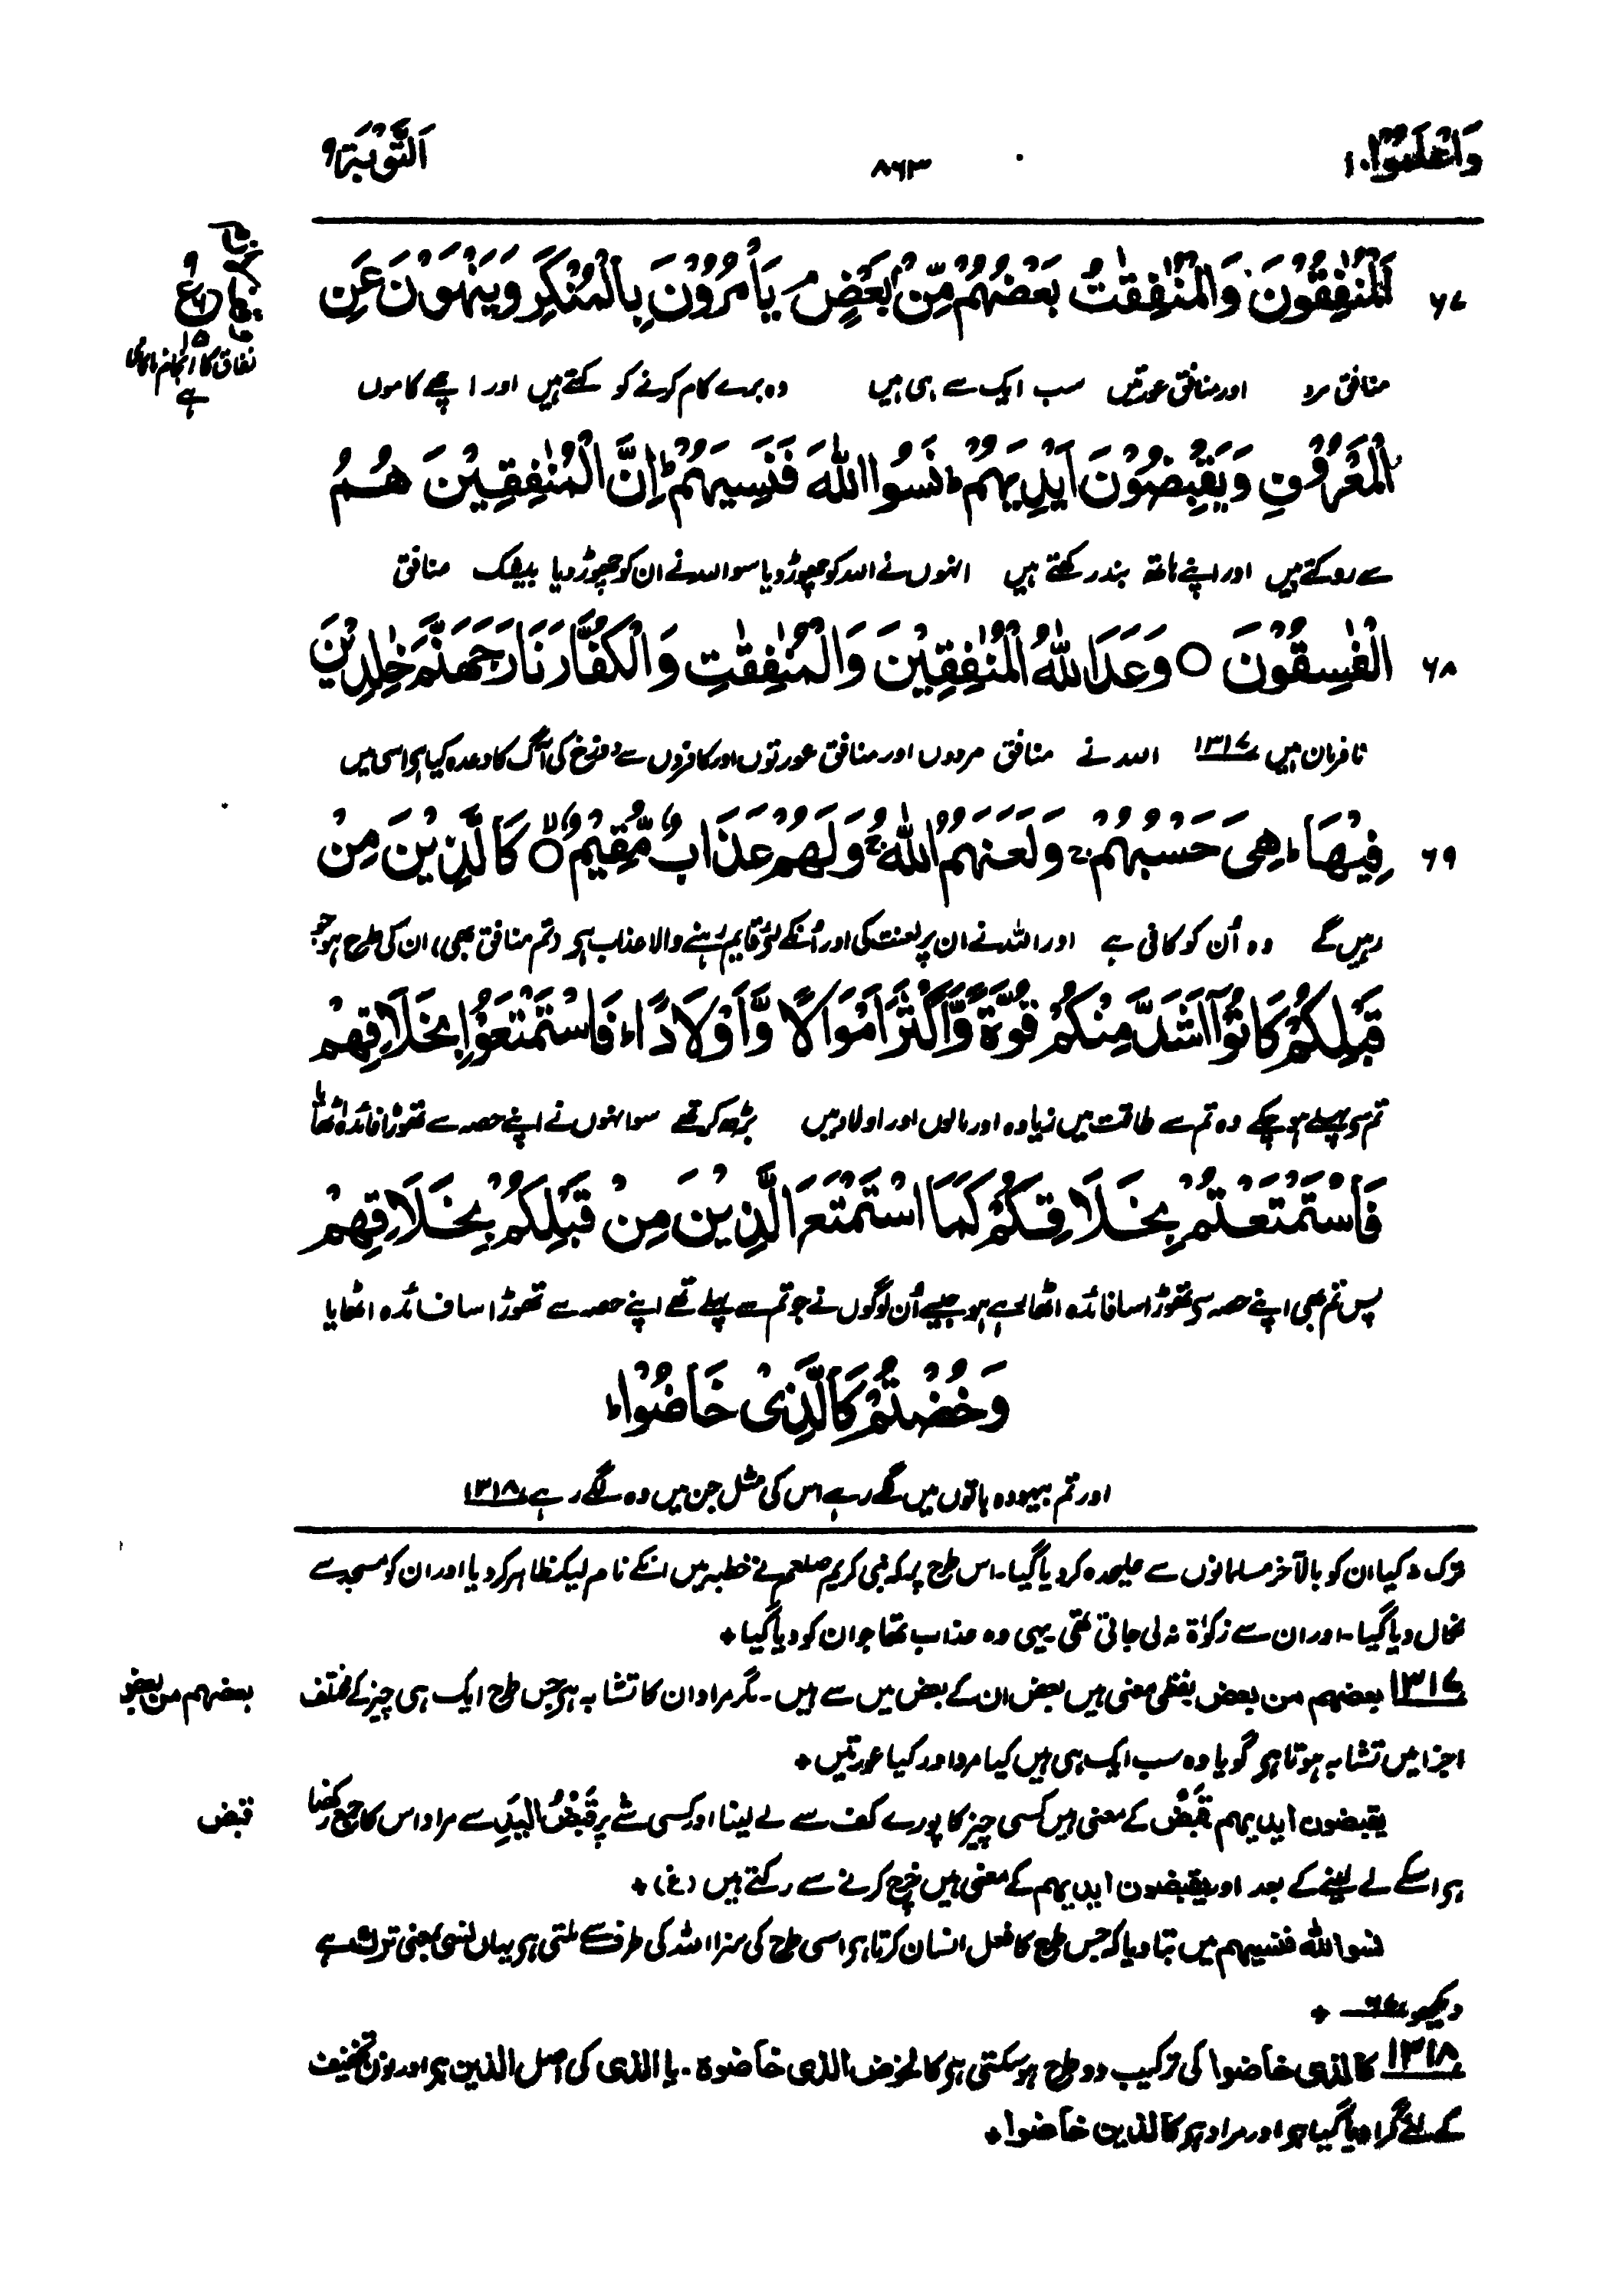 وَاعْلَمُوْٓا۱۰ ۸۶۳ اَلتَّوْبَۃ۹
۶۷ اَلْمُنٰفِقُوْنَ وَالْمُنٰفِقٰتُ بَعْضُہُمْ مِّنْۢ بَعْضٍ ۘ یَاْمُرُوْنَ بِالْمُنْکَرِ وَیَنْہَوْنَ عَنِ
ع
۹
۱۵
نفاق کا انجام ناکامی
ہے
منافق مرد اور منافق عورتیں سب ایک سے ہی ہیں وہ برے کام کرنے کو کہتے ہیں اور اچھے کاموں
الْمَعْرُوْفِ وَیَقْبِضُوْنَ اَیْدِیَہُمْ ؕ نَسُوا اللّٰہَ فَنَسِیَہُمْ ؕ اِنَّ الْمُنٰفِقِیْنَ ہُمُ
سے روکتے ہیں اور اپنے ہاتھ بند رکھتے ہیں انہوں نے اللہ کو چھوڑ دیا سو اللہ نے ان کو چھوڑ دیا بیشک منافق
۶۸ الْفٰسِقُوْنَ ○ وَعَدَ اللّٰہُ الْمُنٰفِقِیْنَ وَالْمُنٰفِقٰتِ وَالْکُفَّارَ نَارَ جَہَنَّمَ خٰلِدِیْنَ
نافرمان ہیں ۱۳۱۷ اللہ نے منافق مردوں اور منافق عورتوں اور کافروں سے دوزخ کی آگ کا وعدہ کیا ہو اسی میں
۶۹ فِیْہَا ؕ ہِیَ حَسْبُہُمْ ۚ وَلَعَنَہُمُ اللّٰہُ ۚ وَلَہُمْ عَذَابٌ مُّقِیْمٌ ○ کَالَّذِیْنَ مِنْ
رہیں گے وہ اُن کو کافی ہے اور اللہ نے ان پر لعنت کی اور اُنکے لئے قایم رہنے والا عذاب ہو (تم منافق بھی) ان کی طرح ہو جو
قَبْلِکُمْ کَانُوْٓا اَشَدَّ مِنْکُمْ قُوَّۃً وَّاَکْثَرَ اَمْوَالًا وَّاَوْلَادًا ؕ فَاسْتَمْتَعُوْا بِخَلَاقِہِمْ
تم سو پہلے ہو چکے وہ تم سے طاقت میں زیادہ اور مالوں اور اولاد میں بڑھ کر تھے سو انہوں نے اپنے حصہ سے تھوڑا فائدہ اٹھایا
فَاسْتَمْتَعْتُمْ بِخَلَاقِکُمْ کَمَا اسْتَمْتَعَ الَّذِیْنَ مِنْ قَبْلِکُمْ بِخَلَاقِہِمْ
پس تم بھی اپنے حصہ سو تھوڑا سا فائدہ اٹھا رہے ہو جیسے اُن لوگوں نے جو تم سے پہلے تھے اپنے حصہ سے تھوڑا سا فائدہ اٹھایا
وَخُضْتُمْ کَالَّذِیْ خَاضُوْا ؕ
اور تم بیہودہ باتوں میں لگے رہے اس کی مثل جن میں وہ لگے رہے ۱۳۱۸
ترک نہ کیا ان کو بالآخر مسلمانوں سے علیحدہ کر دیا گیا۔ اس طرح پر کہ نبی کریم صلعم نے خطبہ میں انکے نام لیکر ظاہر کر دیا اور ان کو مسجد سے
نکال دیا گیا۔ اور ان سے زکوٰۃ نہ لی جاتی تھی یہی وہ عذاب تھا جو ان کو دیا گیا +
۱۳۱۷ بعضہم من بعض لفظی معنی ہیں بعض ان کے بعض میں سے ہیں۔ مگر مراد ان کا تشابہ ہو جس طرح ایک ہی چیز کے مختلف
بعضہم من بعض
اجزا میں تشابہ ہوتا ہو گویا وہ سب ایک ہی ہیں کیا مرد اور کیا عورتیں +
یقبضون ایدیہم قَبْضٌ کے معنی ہیں کسی چیز کا پورے کف سے لے لینا اور کسی شے پر قَبْضُ الیَدِ سے مراد اس کا جمع رکھنا
قبض
ہو اسکے لے لینے کے بعد اور یقبضون ایدیہم کے معنی ہیں خرچ کرنے سے رکتے ہیں (غ) +
نسوا اللّٰہ فنسیہم میں بتا دیا کہ جس طرح کا فعل انسان کرتا ہو اسی طرح کی سزا اللہ کی طرف سے ملتی ہو یہاں نسی بمعنی ترک ہے
دیکھو ۶۷ +
۱۳۱۸ کالذی خاضوا کی ترکیب دو طرح ہو سکتی ہو کالخوض الذی خاضوہ۔ یا الذی کی اصل الذین ہو اور نون تخفیف
کے لئے گرا دیا گیا ہو اور مراد ہو کالذین خاضوا +